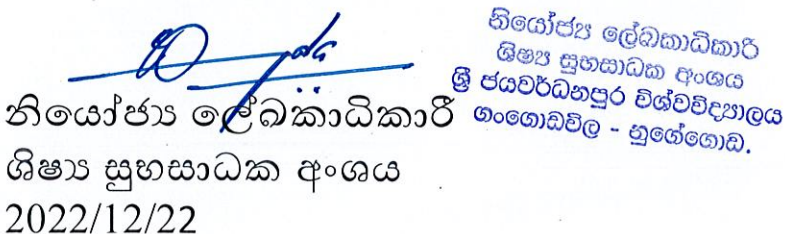 නියෝජ්‍ය ලේඛකාධිකාරී
ශිෂ්‍ය සුභසාධක අංශය
2022/12/22
නියෝජ්‍ය ලේඛකාධිකාරී
ශිෂ්‍ය සුභසාධක අංශය
ශ්‍රී ජයවර්ධනපුර විශ්වවිද්‍යාලය
ගංගොඩවිල - නුගේගොඩ.